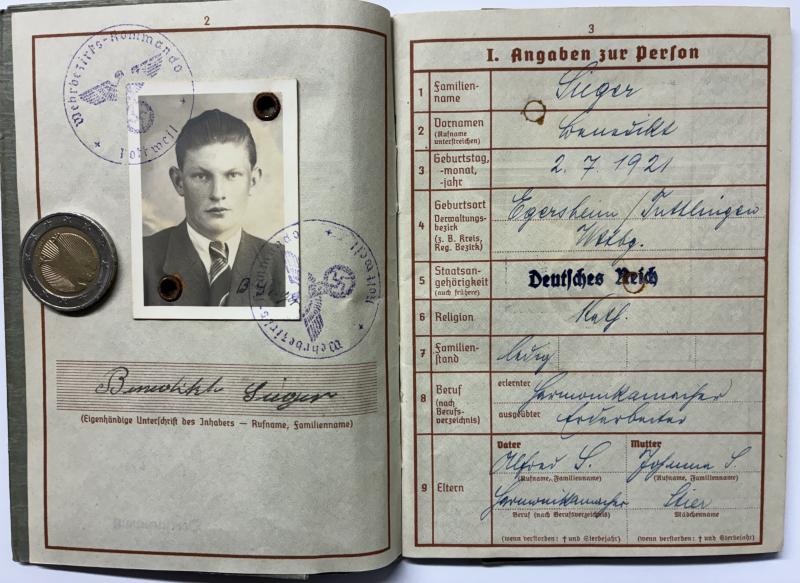 2
Wehrbezirks-Kommando
Rottweil
Wehrbezirks-Kommando
Rottweil
Benedikt Sieger
(Eigenhändige Unterschrift des Inhabers — Rufname, Familienname)
3
I. Angaben zur Person
1 Familien-
name
Sieger
2 Vornamen
(Rufname
unterstreichen)
Benedikt
3 Geburtstag,
-monat,
-jahr
2. 7. 1921
4 Geburtsort
Verwaltungs-
bezirk
(z. B. Kreis,
Reg. Bezirk)
Egesheim / Tuttlingen
Wttbg.
5 Staatsan-
gehörigkeit
(auch frühere)
Deutsches Reich
6 Religion
Kath.
7 Familien-
stand
ledig
8 Beruf
(nach
Berufs-
verzeichnis)
erlernter
Harmonikamacher
ausgeübter
Erdarbeiter
9 Eltern
Vater
Mutter
Alfred S.
Johanna S.
(Rufname, Familienname)
(Rufname, Familienname)
Harmonikamacher
Stier
Beruf (nach Berufsverzeichnis)
Mädchenname
(wenn verstorben: † und Sterbejahr)
(wenn verstorben: † und Sterbejahr)